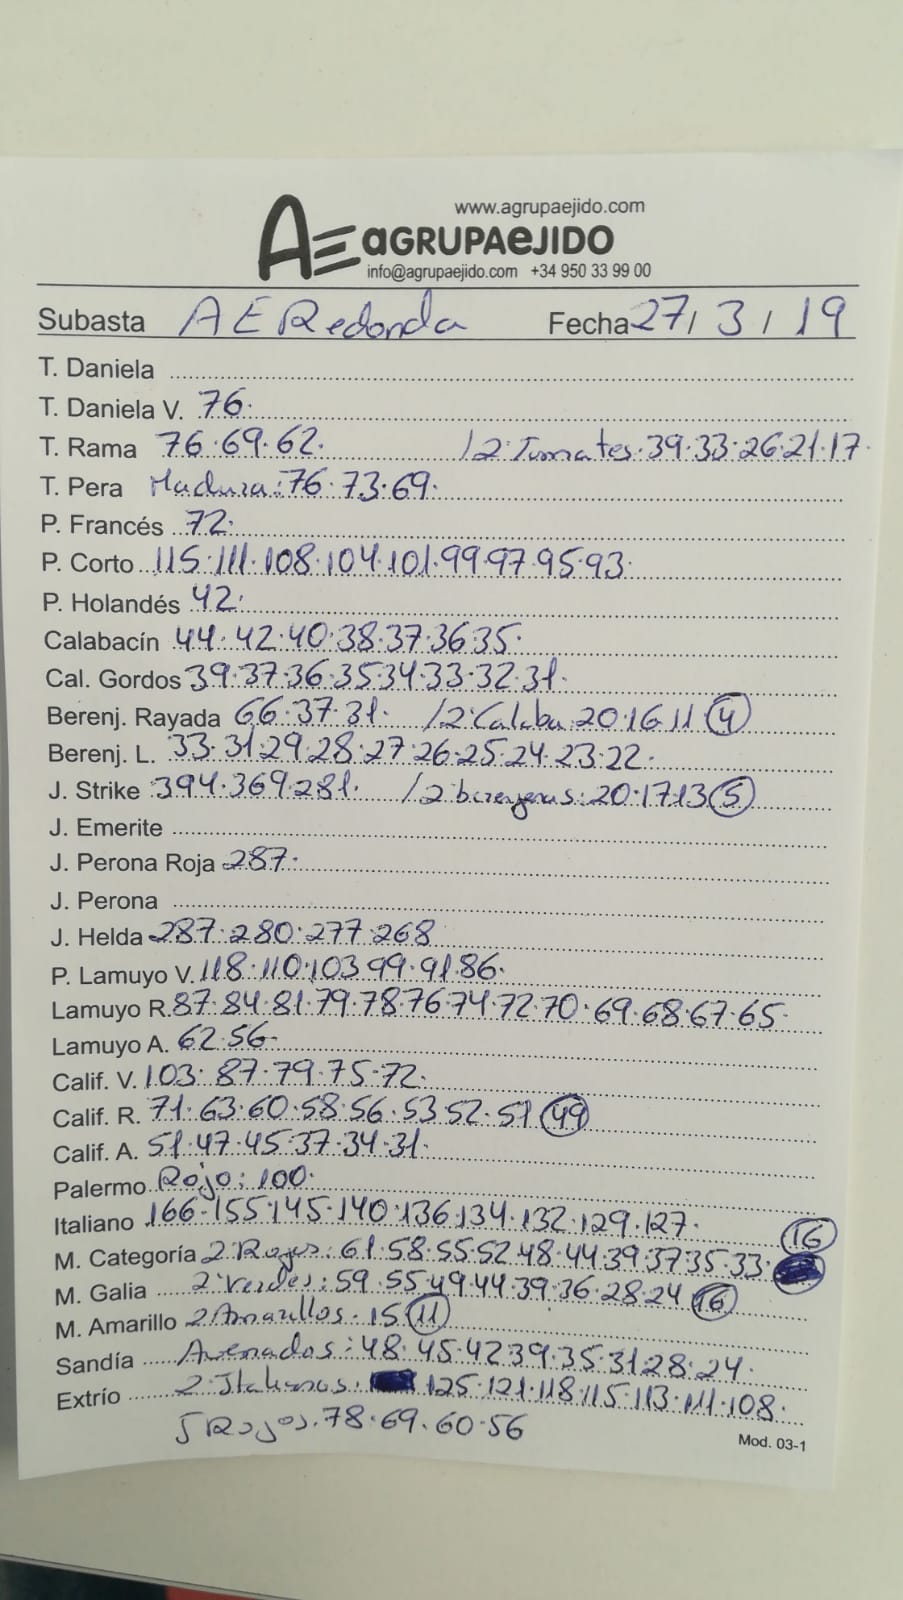 www.agrupaejido.com
AE aGRUPAeJIDO
info@agrupaejido.com +34 950 33 99 00
Subasta AE Redonda Fecha 27/3/19
T. Daniela
T. Daniela V. 76.
T. Rama 76.69.62. /2ª Tomates.39.33.26.21.17.
T. Pera Madura:76.73.69.
P. Francés 72.
P. Corto 115.111.108.104.101.99.97.95.93.
P. Holandés 42.
Calabacín 44.42.40.38.37.36.35.
Cal. Gordos 39.37.36.35.34.33.32.31.
Berenj. Rayada 66.37.31. /2ª Calaba:20.16.11 (4)
Berenj. L. 33.31.29.28.27.26.25.24.23.22.
J. Strike 394.369.281. /2ª berenjenas:20.17.13 (5)
J. Emerite
J. Perona Roja 287.
J. Perona
J. Helda 287.280.277.268
P. Lamuyo V. 118.110.103.99.91.86.
Lamuyo R. 87.84.81.79.78.76.74.72.70.69.68.67.65.
Lamuyo A. 62.56.
Calif. V. 103.87.79.75.72.
Calif. R. 71.63.60.58.56.53.52.51 (49)
Calif. A. 51.47.45.37.34.31.
Palermo Rojo:100.
Italiano 166.155.145.140.136.134.132.129.127.
M. Categoría 2ª Rojos:61.58.55.52.48.44.39.37.35.33. (16)
M. Galia 2ª Verdes:59.55.49.44.39.36.28.24 (16)
M. Amarillo 2 Amarillos.15 (11)
Sandía Asenados:48.45.42.39.35.31.28.24.
Extrío 2ª Italianos. 125.121.118.115.113.111.108.
5 Rojos.78.69.60.56
Mod. 03-1